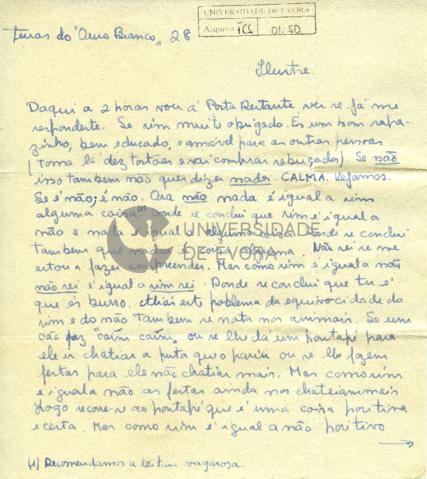 UNIVERSIDADE DE ÉVORA
Arquivo TCS 01.50
Terras do "Ouro Branco", 28
Ilustre.
Daqui a 2 horas vou á Posta Restante ver se já me
respondeste. Se sim muito obrigado. És um bom rapa-
zinho, bem educado, e amável para as outras pessoas
(toma lá dez tostões e vai comprar rebuçados). Se não
isso tambem não quer dizer nada. CALMA. Vejamos.
Se é não, é não. Ora não nada é igual a sim
alguma coisa donde se conclui que sim é igual a
não e não igual a alguma coisa donde se conclui
tambem que alguma. Não sei se me
estou a fazer compreender. Mas como sim é igual a não
não sei é igual a sim sei. Donde se conclui que tu é
que és burro. Aliás este problema da equivocidade do
sim e do não tambem se nota nos animais. Se um
cão faz "caím caím" ou se lhe dá um pontapé para
ele ir chatiar a puta que o pariu ou se lhe fazem
festas para ele não chatiar mais. Mas como sim
é igual a não as festas ainda nos chateiam mais
Logo recorre-se ao pontapé que é uma coisa positiva
e certa. Mas como sim é igual a não positivo
(1) Recomendamos a leitura vagarosa.
UNIVERSIDADE
DE ÉVORA